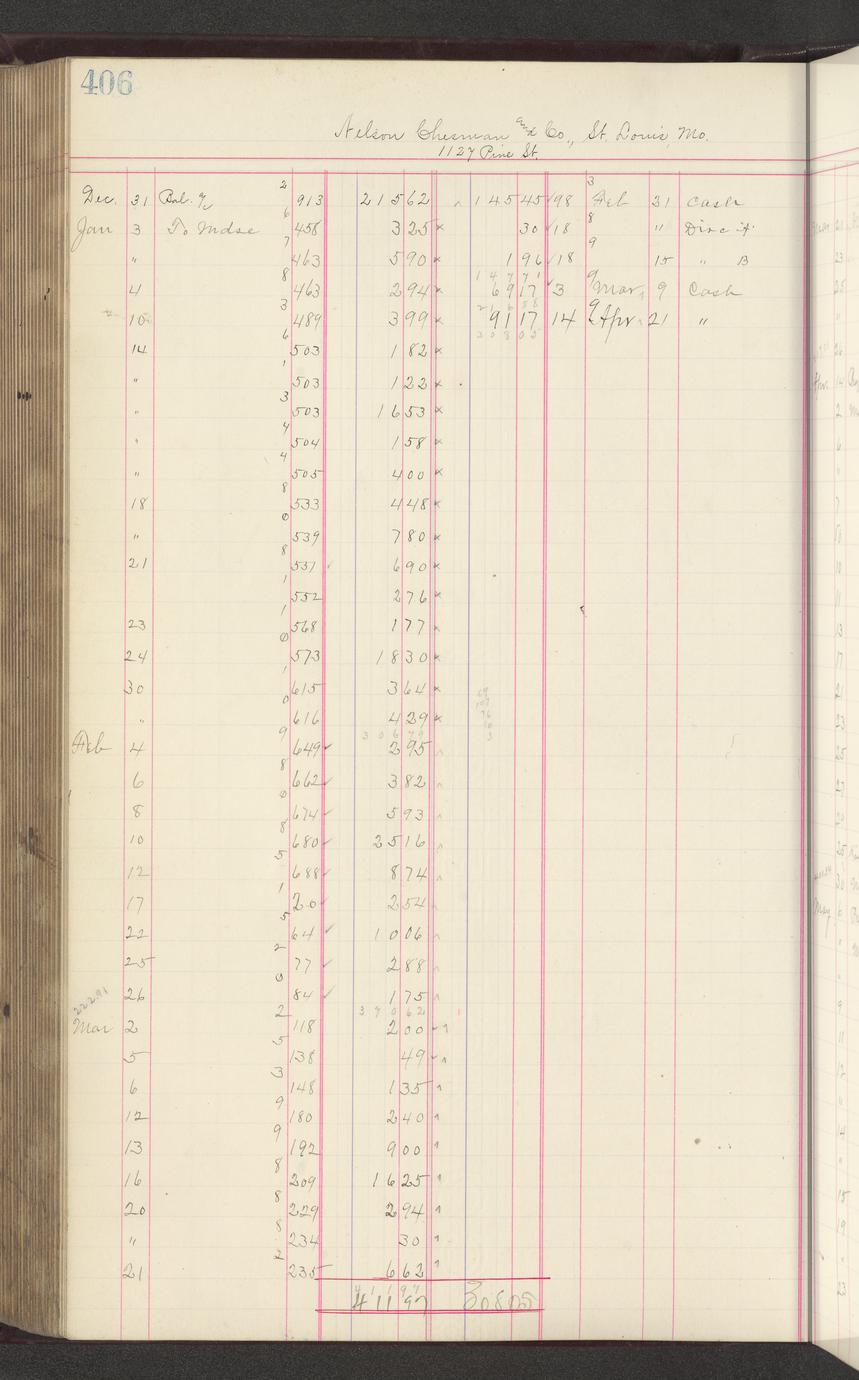 406
Nelson Chesman and Co., St. Louis, Mo.
1127 Pine St.
Dec. 31 Bal. 2 913 21562 14545 98 3 Feb 21 Cash
Jan 3 To Mdse 6 458 325 x 30 18 8 " 
" 7 463 590 x 196 18 9 15 " B
14771
4 8 463 294 x 6917 3 9 Mar 9 Cash
21688
10 3 489 399 x 9117 14 9 Apr 21 "
30805
14 6 503 182 x
" 1 503 122 x
" 3 503 1653 x
" 4 504 158 x
" 4 505 400 x
18 8 533 448 x
" 0 539 780 x
21 8 551 690 x
1 552 276 x
23 1 568 177 x
24 0 573 1830 x
30 1 615 364 x
" 0 616 429 x
30679
Feb 4 9 649 295
6 8 662 382
8 0 674 593
10 8 680 2516
12 5 688 874
17 1 20 254
22 5 64 1006
25 2 77 288
26 0 84 175
37062
Mar 2 2 118 200
5 5 138 49
6 3 148 135
12 9 180 240
13 9 192 900
16 8 209 1625
20 8 229 294
" 8 234 30
21 2 235 662
41197 30805